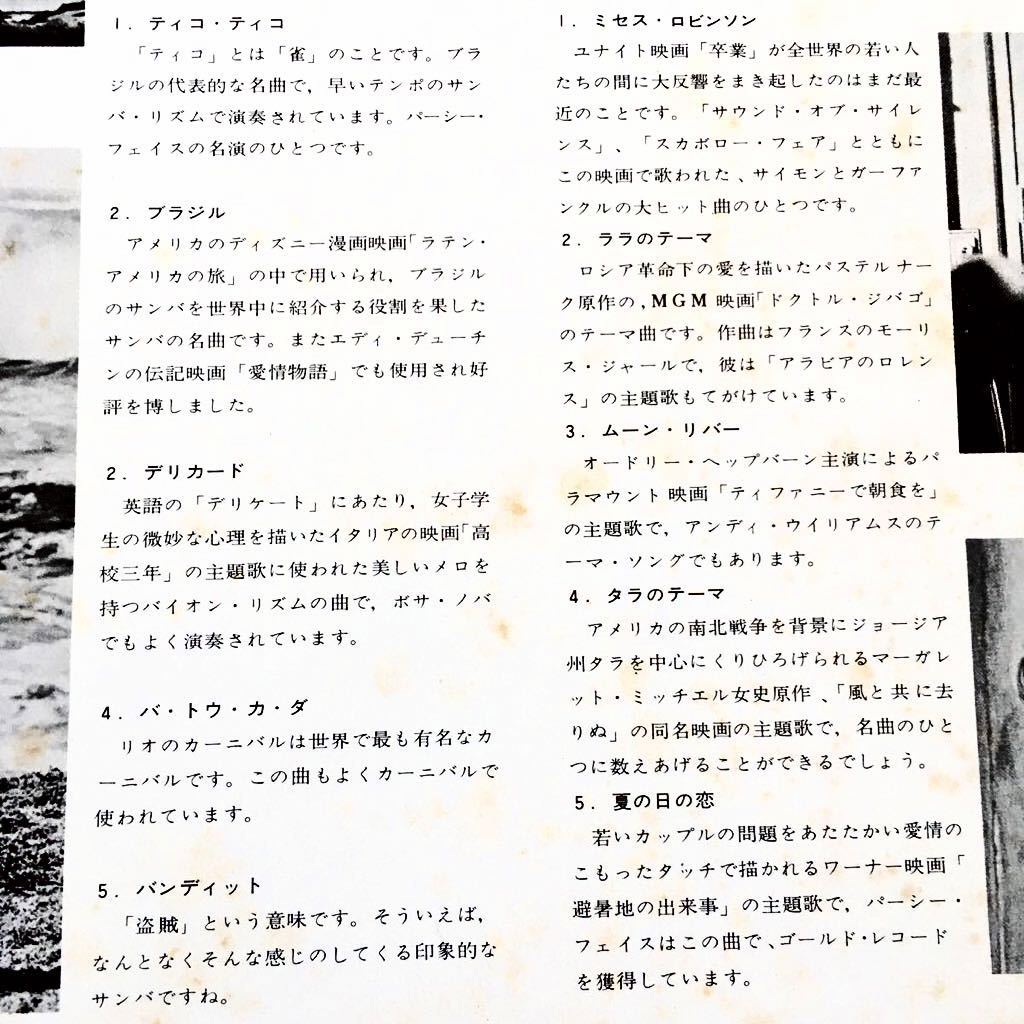 1. ティコ・ティコ
「ティコ」とは「雀」のことです。ブラ
ジルの代表的な名曲で，早いテンポのサン
バ・リズムで演奏されています。パーシー・
フェイスの名演のひとつです。
2. ブラジル
アメリカのディズニー漫画映画「ラテン・
アメリカの旅」の中で用いられ，ブラジル
のサンバを世界中に紹介する役割を果した
サンバの名曲です。またエディ・デューチ
ンの伝記映画「愛情物語」でも使用され好
評を博しました。
2. デリカード
英語の「デリケート」にあたり，女子学
生の微妙な心理を描いたイタリアの映画「高
校三年」の主題歌に使われた美しいメロを
持つバイオン・リズムの曲で，ボサ・ノバ
でもよく演奏されています。
4. バ・トウ・カ・ダ
リオのカーニバルは世界で最も有名なカ
ーニバルです。この曲もよくカーニバルで
使われています。
5. バンディット
「盗賊」という意味です。そういえば，
なんとなくそんな感じのしてくる印象的な
サンバですね。
1. ミセス・ロビンソン
ユナイト映画「卒業」が全世界の若い人
たちの間に大反響をまき起したのはまだ最
近のことです。「サウンド・オブ・サイレ
ンス」、「スカボロー・フェア」とともに
この映画で歌われた、サイモンとガーファ
ンクルの大ヒット曲のひとつです。
2. ララのテーマ
ロシア革命下の愛を描いたパステルナー
ク原作の，MGM映画「ドクトル・ジバゴ」
のテーマ曲です。作曲はフランスのモーリ
ス・ジャールで，彼は「アラビアのロレン
ス」の主題歌もてがけています。
3. ムーン・リバー
オードリー・ヘップバーン主演によるパ
ラマウント映画「ティファニーで朝食を」
の主題歌で，アンディ・ウイリアムスのテ
ーマ・ソングでもあります。
4. タラのテーマ
アメリカの南北戦争を背景にジョージア
州タラを中心にくりひろげられるマーガレ
ット・ミッチエル女史原作、「風と共に去
りぬ」の同名映画の主題歌で，名曲のひと
つに数えあげることができるでしょう。
5. 夏の日の恋
若いカップルの問題をあたたかい愛情の
こもったタッチで描かれるワーナー映画「
避暑地の出来事」の主題歌で，パーシー・
フェイスはこの曲で、ゴールド・レコード
を獲得しています。